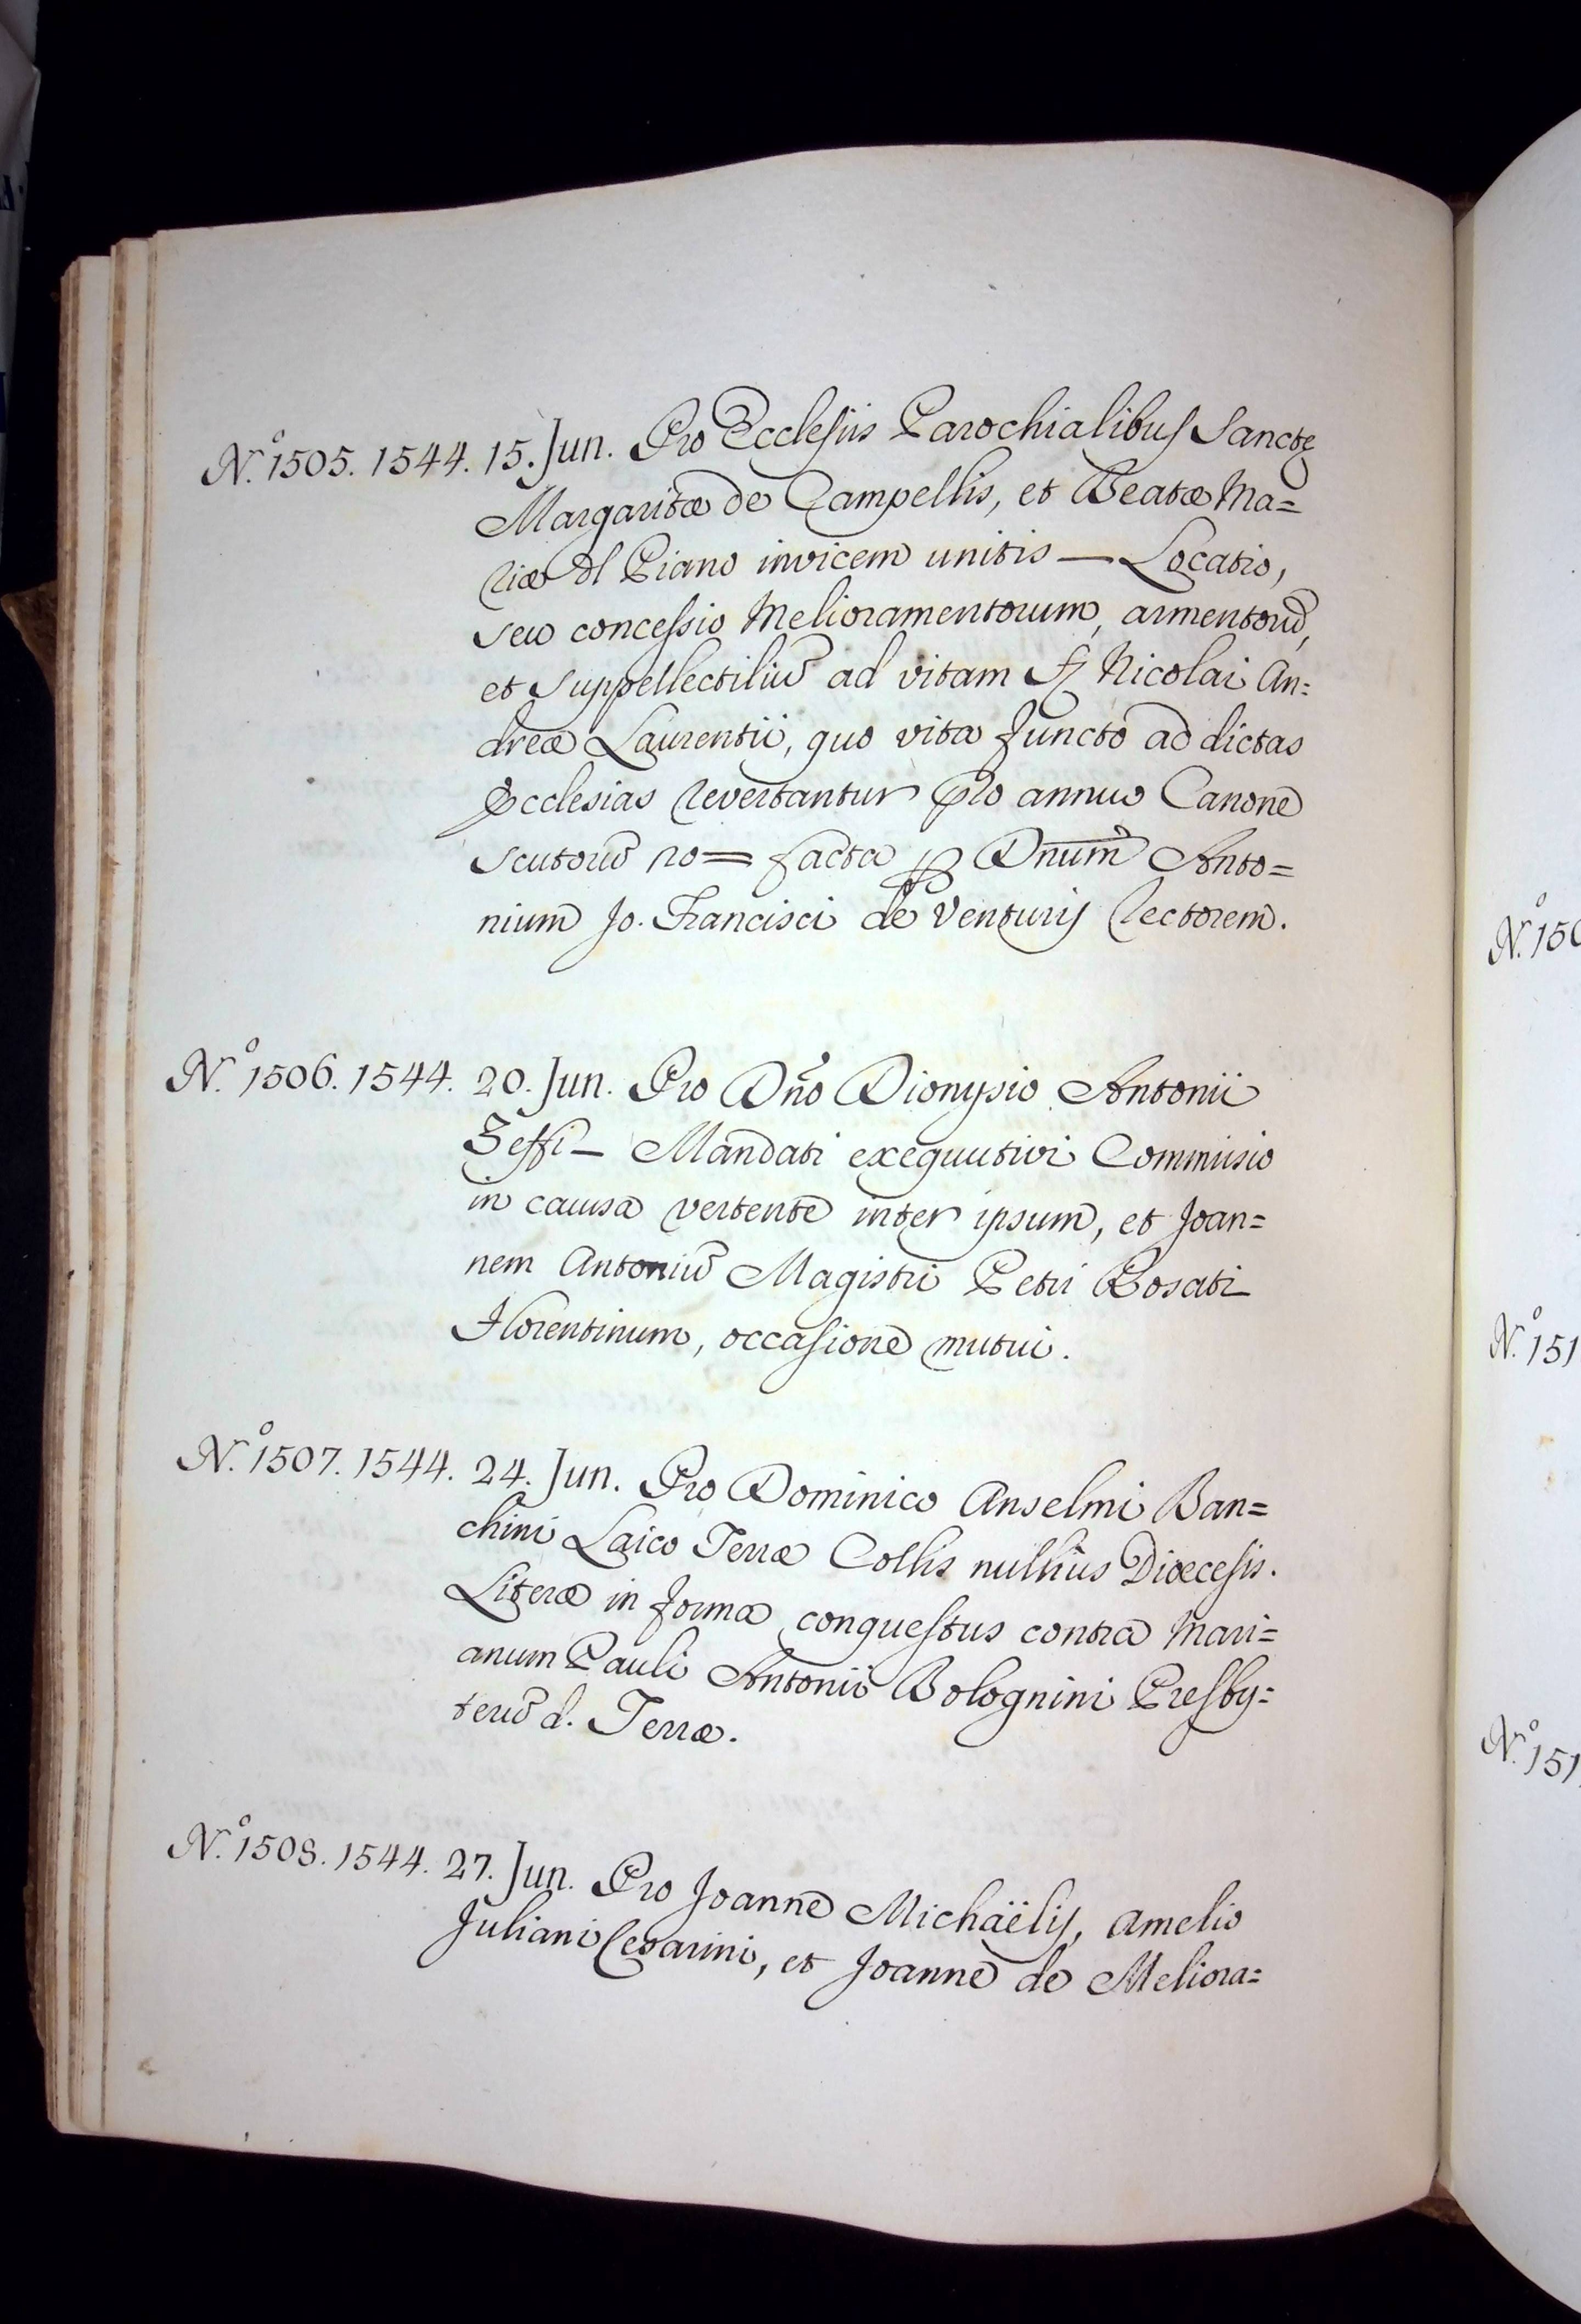 N.º 1505. 1544. 15. Jun. Pro Ecclesiis Parochialibus Sanctę
Margaritæ de Campellis, et Beatæ Ma=
riæ dl Piano invicem unitis — Locatio,
seu concessio Melioramentorum, armentorũ,
et suppellectiliũ ad vitam Nicolai An=
dreæ Laurentii, quo vita functo ad dictas
Ecclesias revertantur pro annuo Canone
scutorũ = facta ꝑ Dnum Anto=
nium Jo. Francisci de Venturis rectorem.
N.º 1506. 1544. 20. Jun. Pro Dño Dionysio Antonii
Zeffi — Mandati exequutivi Commisio
in causa vertente inter ipsum, et Joan=
nem Antoniũ Magistri Petri Rosati
Florentinum, occasione mutui.
N.º 1507. 1544. 24. Jun. Pro Dominico Anselmi Ban=
chini Laico Terræ Collis nullius Dioecesis.
Literæ in forma conquestus contra Mari=
anum Pauli Antonii Bolognini Presby=
terũ d. Terræ.
N.º 1508. 1544. 27. Jun. Pro Joanne Michaëlis, Amelio
Juliani Cesarini, et Joanne de Meliora=
N.º 150
N.º 151
N.º 151